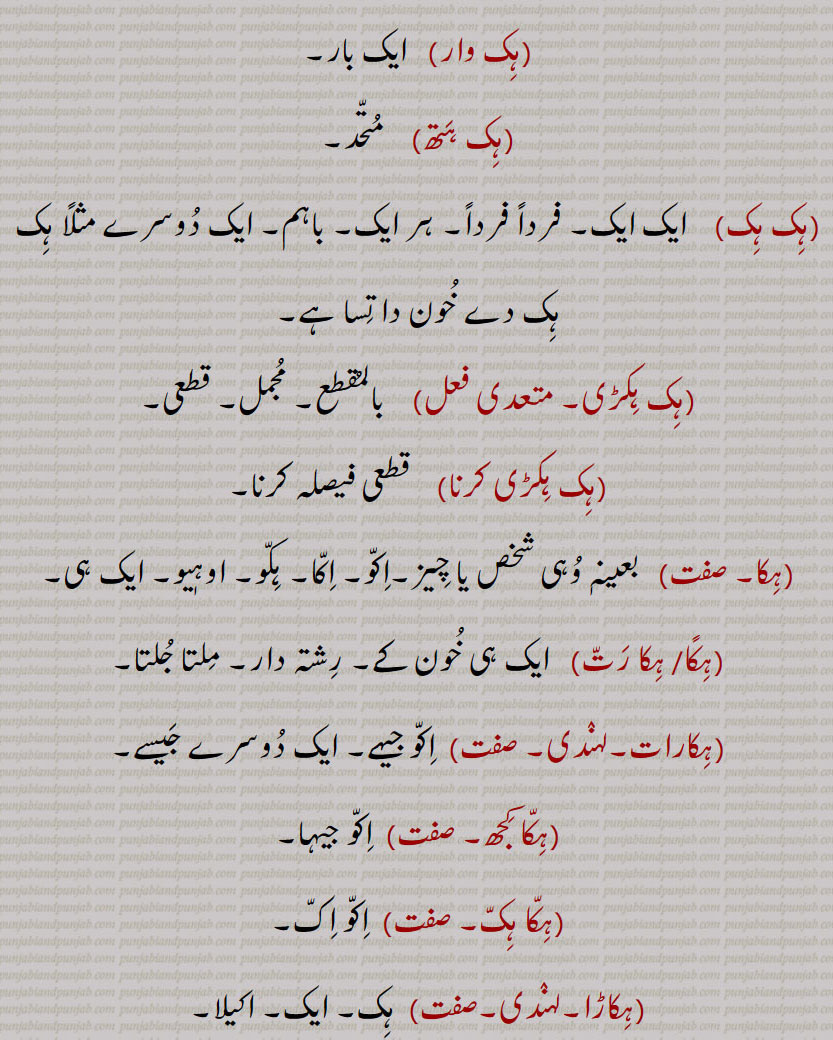 (ہِک وار) ایک بار۔
(ہِک ہَتھ) مُتحّد۔
(ہِک ہِک) ایک ایک۔ فرداً فرداً۔ ہر ایک۔ باہم۔ ایک دُوسرے مثلاً ہِک
ہِک دے خُون دا تِسا ہے۔
(ہِک ہِکڑی۔ متعدی فعل) بالمقطع۔ مُجمل۔ قطعی۔
(ہِک ہِکڑی کرنا) قطعی فیصلہ کرنا۔
(ہِکا۔ صفت) بعینہٖ وُہی شخص یا چِیز۔اِکوّ۔ اِکاّ۔ ہِکوّ۔ اوہیو۔ ایک ہی۔
(ہِکاً/ ہِکا رَتّ) ایک ہی خُون کے۔ رِشتہ دار۔ مِلتا جُلتا۔
(ہِکارات۔لہنْدی۔ صفت) اِکوّ جیہے۔ ایک دُوسرے جَیسے۔
(ہِکاّ کُجھ۔ صفت) اِکوّ جیہا۔
(ہِکاّ ہِکّ۔ صفت) اِکوّ اِکّ۔
(ہِکاڑا۔لہنْدی۔صفت) ہِک۔ ایک۔ اکیلا۔
punjabiandpunjab com